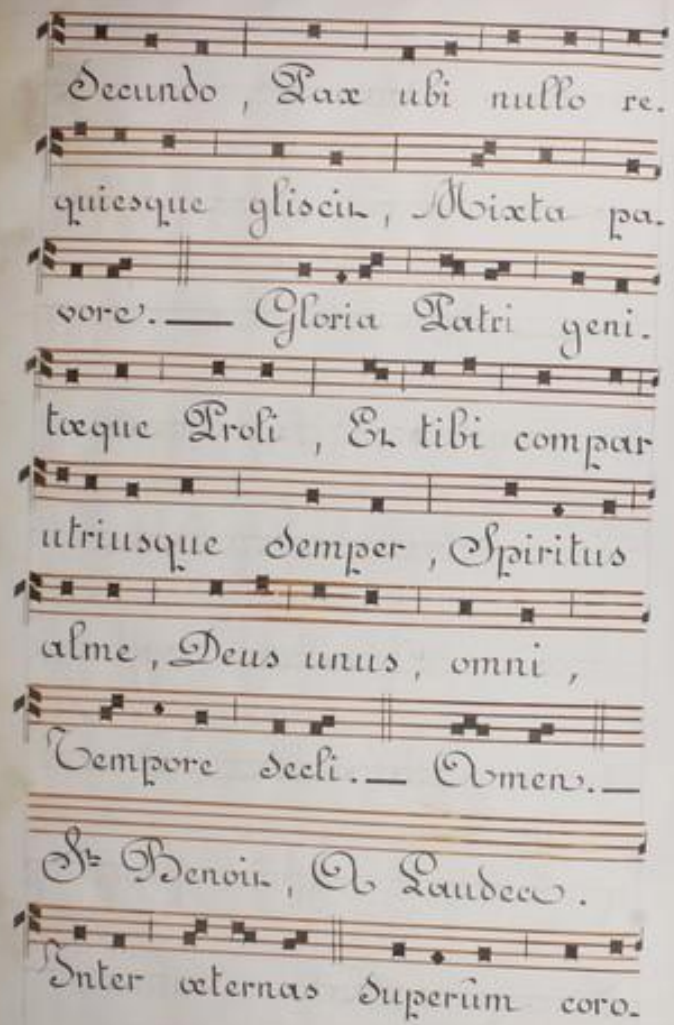 Secundo, Pax ubi nullo re-
quiesque gliscit, Mixta pa-
vore. — Gloria Patri geni-
tæque Proli, Et tibi compar
utriusque semper, Spiritus
alme, Deus unus, omni,
Tempore secli. — Amen. —
St Benoit, A Laudes.
Inter æternas superûm coro-